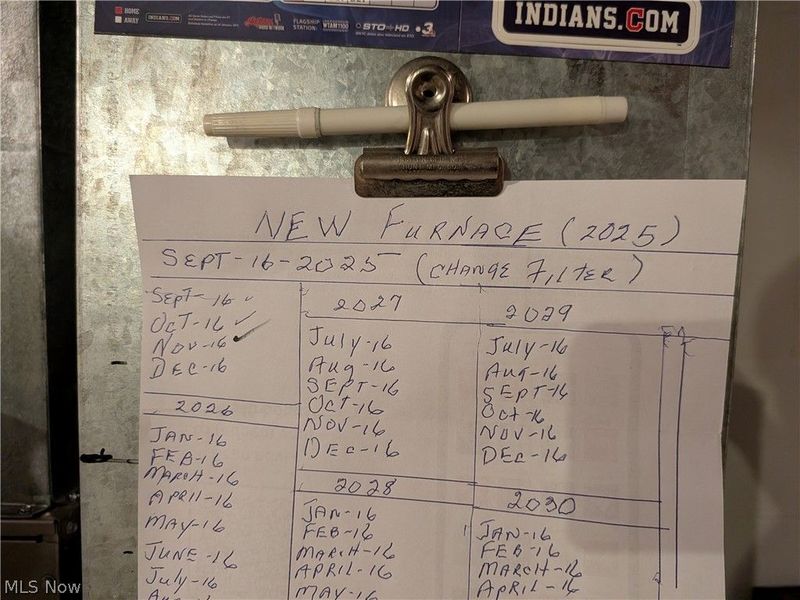 HOME
AWAY
INDIANS.COM
FLAGSHIP
STATION:
WTAM1100
STO HD
3
INDIANS.COM
NEW FURNACE (2025)
SEPT-16-2025 (CHANGE FILTER)
SEPT-16 ✓
OCT-16 ✓
NOV-16
DEC-16
2026
JAN-16
FEB-16
MARCH-16
APRIL-16
MAY-16
JUNE-16
July-16
2027
July-16
Aug-16
SEPT-16
OCT-16
NOV-16
DEC-16
2028
JAN-16
FEB-16
MARCH-16
APRIL-16
MAY-16
2029
July-16
Aug-16
SEPT-16
Oct-16
NOV-16
DEC-16
2030
JAN-16
FEB-16
MARCH-16
APRIL-16
MLS Now